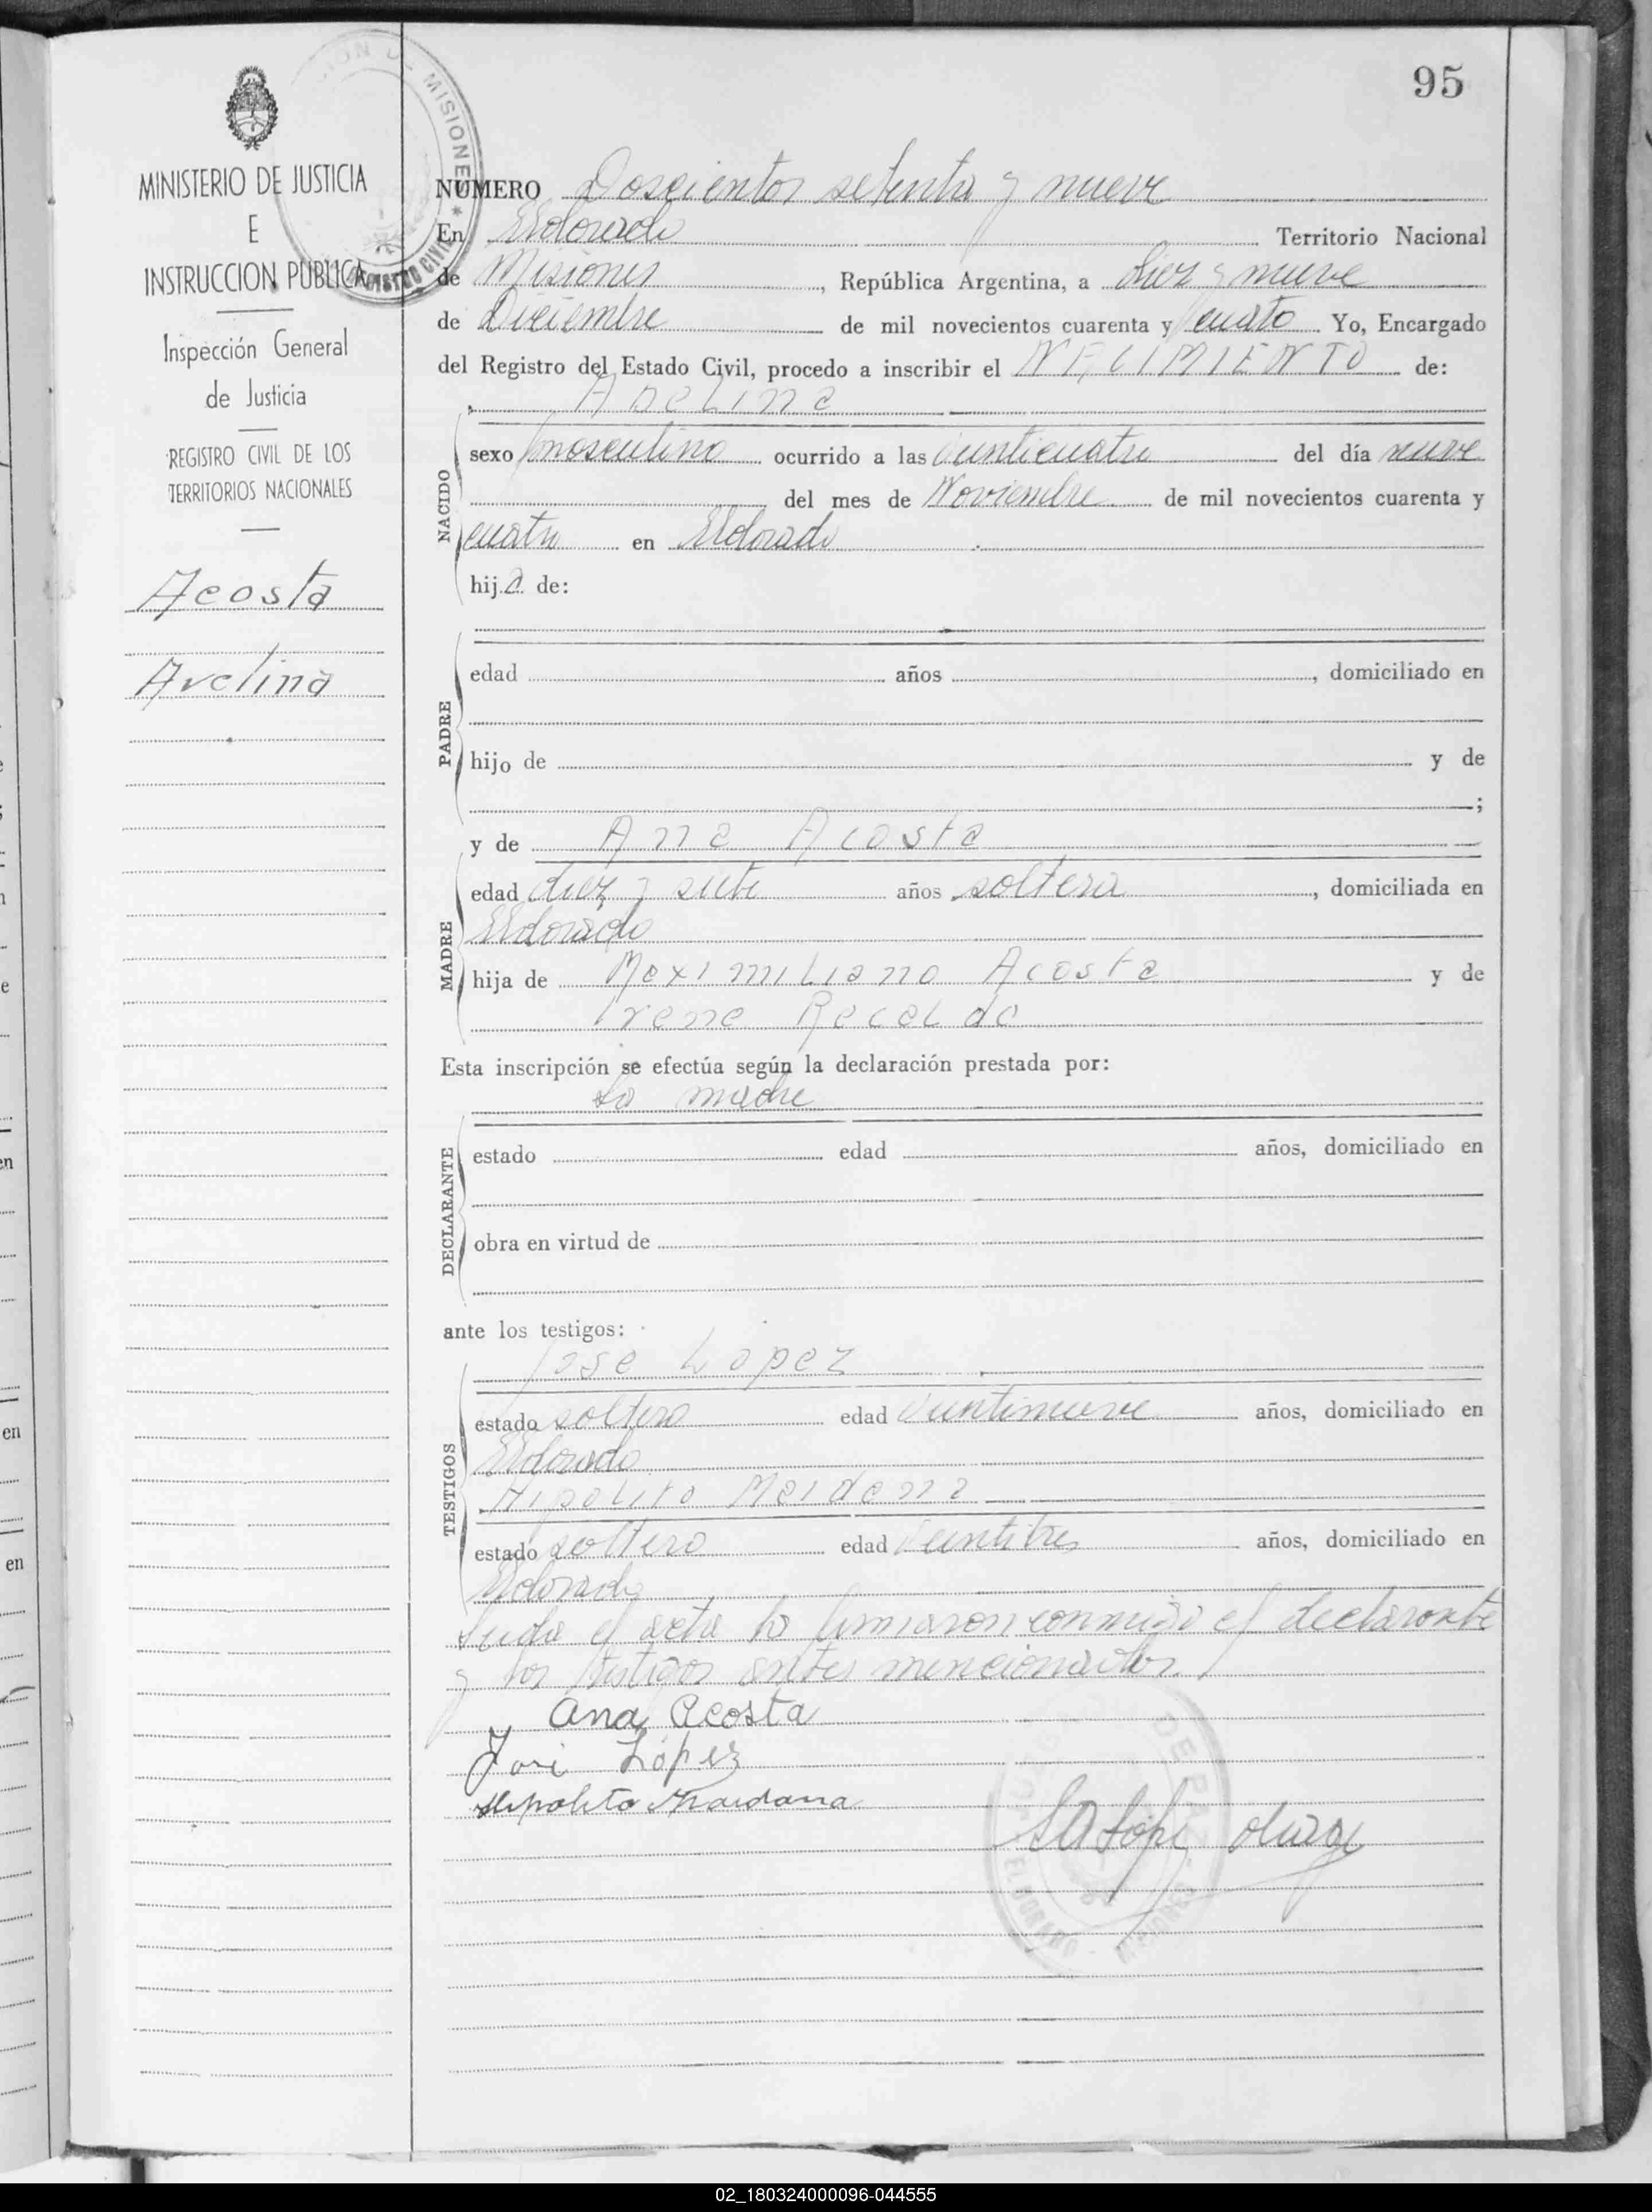 95
MINISTERIO DE JUSTICIA
E
INSTRUCCION PUBLICA
Inspección General
de Justicia
REGISTRO CIVIL DE LOS
TERRITORIOS NACIONALES
Acosta
Avelina
MISIONES * REGISTRO CIVIL
NUMERO Doscientos setenta y nueve
En Eldorado Territorio Nacional
de Misiones, República Argentina, a diez y nueve
de Diciembre de mil novecientos cuarenta y cuatro. Yo, Encargado
del Registro del Estado Civil, procedo a inscribir el NACIMIENTO de:
Abelina
NACIDO
sexo masculino ocurrido a las veinticuatro del día nueve
del mes de Noviembre de mil novecientos cuarenta y
cuatro en Eldorado
hija de:
PADRE
edad años , domiciliado en
hijo de y de
;
y de Ana Acosta
MADRE
edad diez y siete años soltera, domiciliada en
Eldorado
hija de Maximiliano Acosta y de
Irene Recaldo
Esta inscripción se efectúa según la declaración prestada por:
La madre
DECLARANTE
estado edad años, domiciliado en
obra en virtud de
ante los testigos:
Jose Lopez
TESTIGOS
estado soltero edad veintinueve años, domiciliado en
Eldorado
Hipolito Maidana
estado soltero edad veintitres años, domiciliado en
Eldorado
Leida el acta la firmaron conmigo el declarante
y los testigos antes mencionados.
Ana Acosta
José López
Hipolito Maidana
ELDORADO
02_180324000096-044555